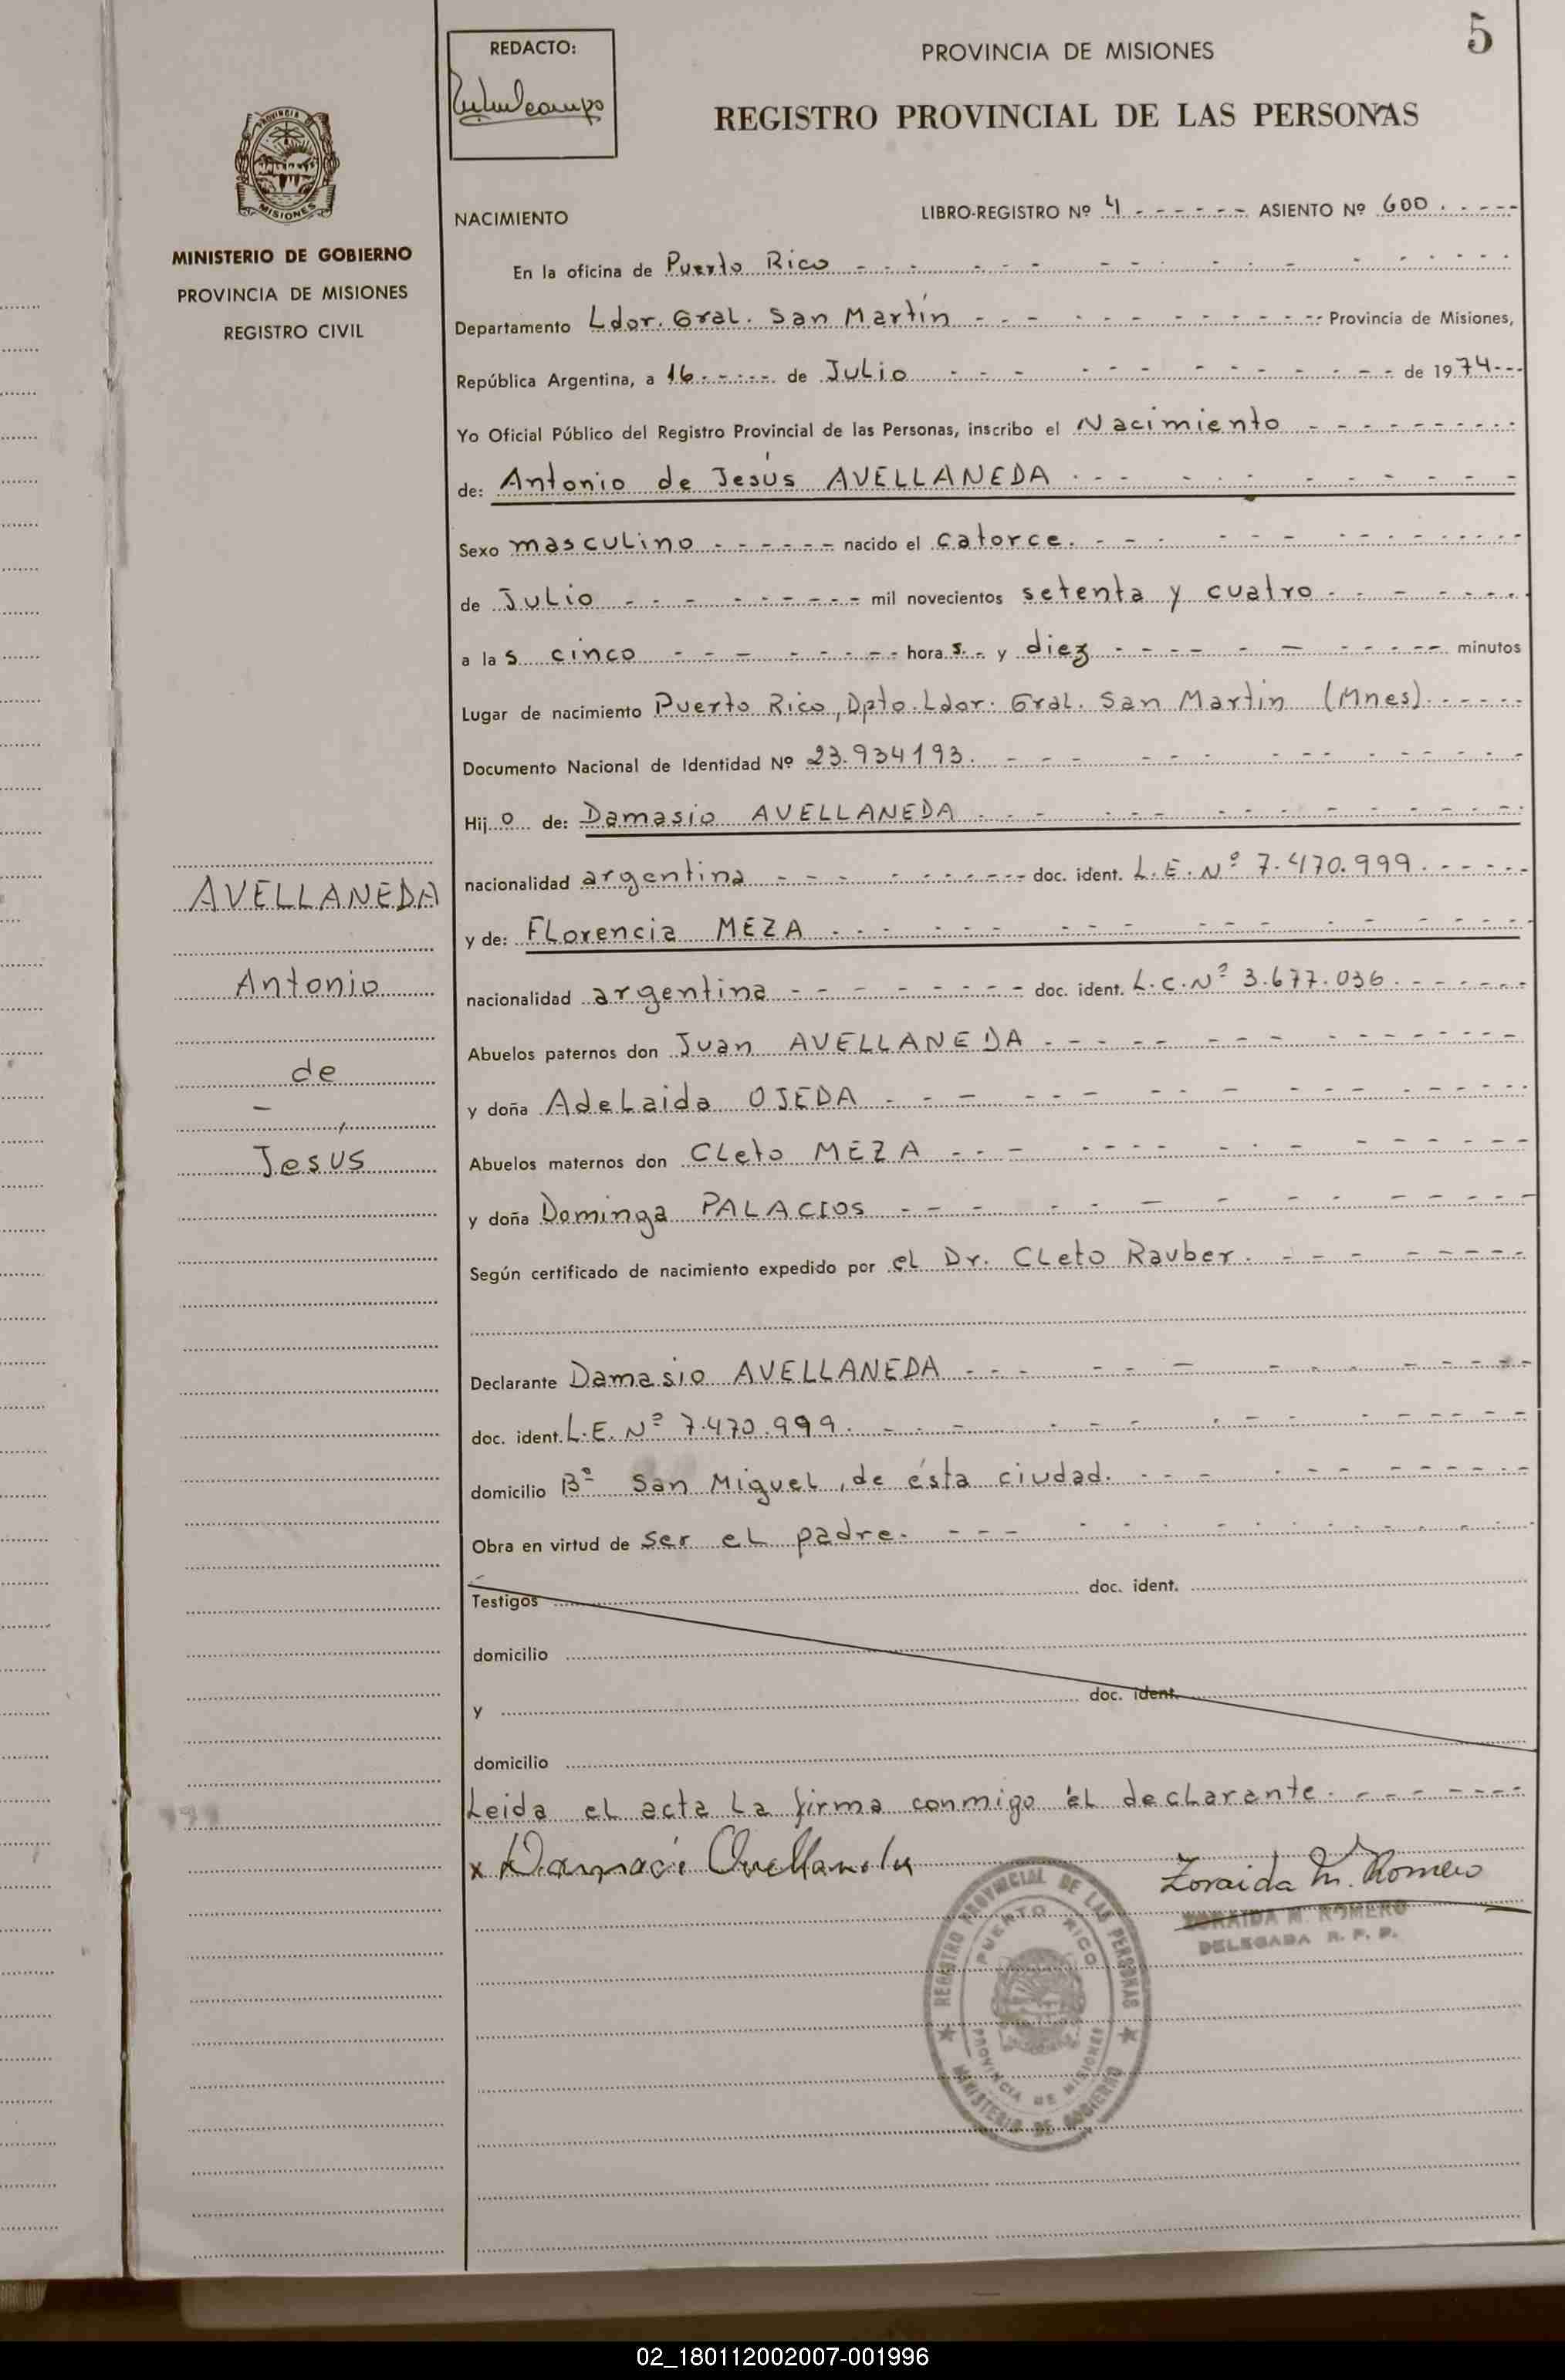 5
REDACTO:
PROVINCIA DE MISIONES
REGISTRO PROVINCIAL DE LAS PERSONAS
PROVINCIA DE
MISIONES
MINISTERIO DE GOBIERNO
PROVINCIA DE MISIONES
REGISTRO CIVIL
NACIMIENTO LIBRO-REGISTRO Nº 4 ASIENTO Nº 600
En la oficina de Puerto Rico
Departamento Ldor. Gral. San Martín Provincia de Misiones,
República Argentina, a 16 de Julio de 1974
Yo Oficial Público del Registro Provincial de las Personas, inscribo el Nacimiento
de: Antonio de Jesús AVELLANEDA
Sexo masculino nacido el catorce.
de Julio mil novecientos setenta y cuatro
a las cinco horas. y diez minutos
Lugar de nacimiento Puerto Rico, Dpto. Ldor. Gral. San Martin (Mnes).
Documento Nacional de Identidad Nº 23.934193.
Hijo de: Damasio AVELLANEDA
nacionalidad argentina doc. ident. L.E. Nº 7.470.999.
y de: Florencia MEZA
nacionalidad argentina doc. ident. L.C. Nº 3.677.036
Abuelos paternos don Juan AVELLANEDA
y doña Adelaida OJEDA
Abuelos maternos don Cleto MEZA
y doña Dominga PALACIOS
Según certificado de nacimiento expedido por el Dr. Cleto Rauber.
Declarante Damasio AVELLANEDA
doc. ident. L.E. Nº 7.470.999.
domicilio Bº San Miguel, de ésta ciudad.
Obra en virtud de ser el padre.
Testigos doc. ident.
domicilio
y doc. ident.
domicilio
Leida el acta la firma conmigo él declarante.
AVELLANEDA
Antonio
de
Jesús
x Damacio Avellaneda
Zoraida M. Romero
ZORAIDA M. ROMERO
DELEGADA R. P. P.
REGISTRO PROVINCIAL DE LAS PERSONAS
PUERTO RICO
PROVINCIA DE MISIONES
MINISTERIO DE GOBIERNO
02_180112002007-001996